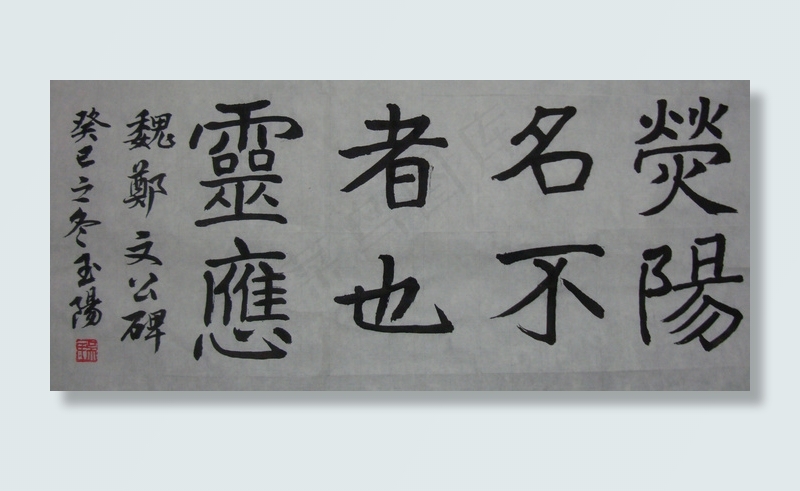 熒陽
名不
者也
靈應
魏鄭文公碑
癸巳之冬玉陽